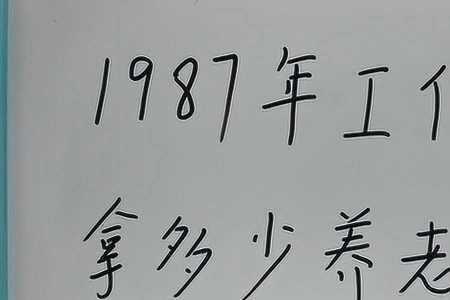 1987年工
拿多少养老